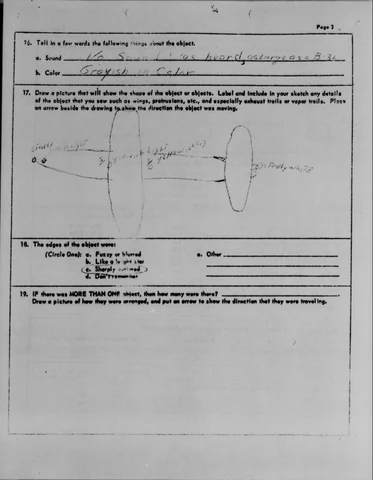 Page 3
16. Tell in a few words the following things about the object.
a. Sound No Sound was heard, as large as a B-36
b. Color Grayish in Color
17. Draw a picture that will show the shape of the object or objects. Label and include in your sketch any details
of the object that you saw such as wings, protrusions, etc., and especially exhaust trails or vapor trails. Place
an arrow beside the drawing to show the direction the object was moving.
Light
Steady white
18. The edges of the object were:
(Circle One): a. Fuzzy or blurred e. Other
b. Like a bright star
c. Sharply outlined
d. Don't remember
19. IF there was MORE THAN ONE object, then how many were there?
Draw a picture of how they were arranged, and put an arrow to show the direction that they were traveling.